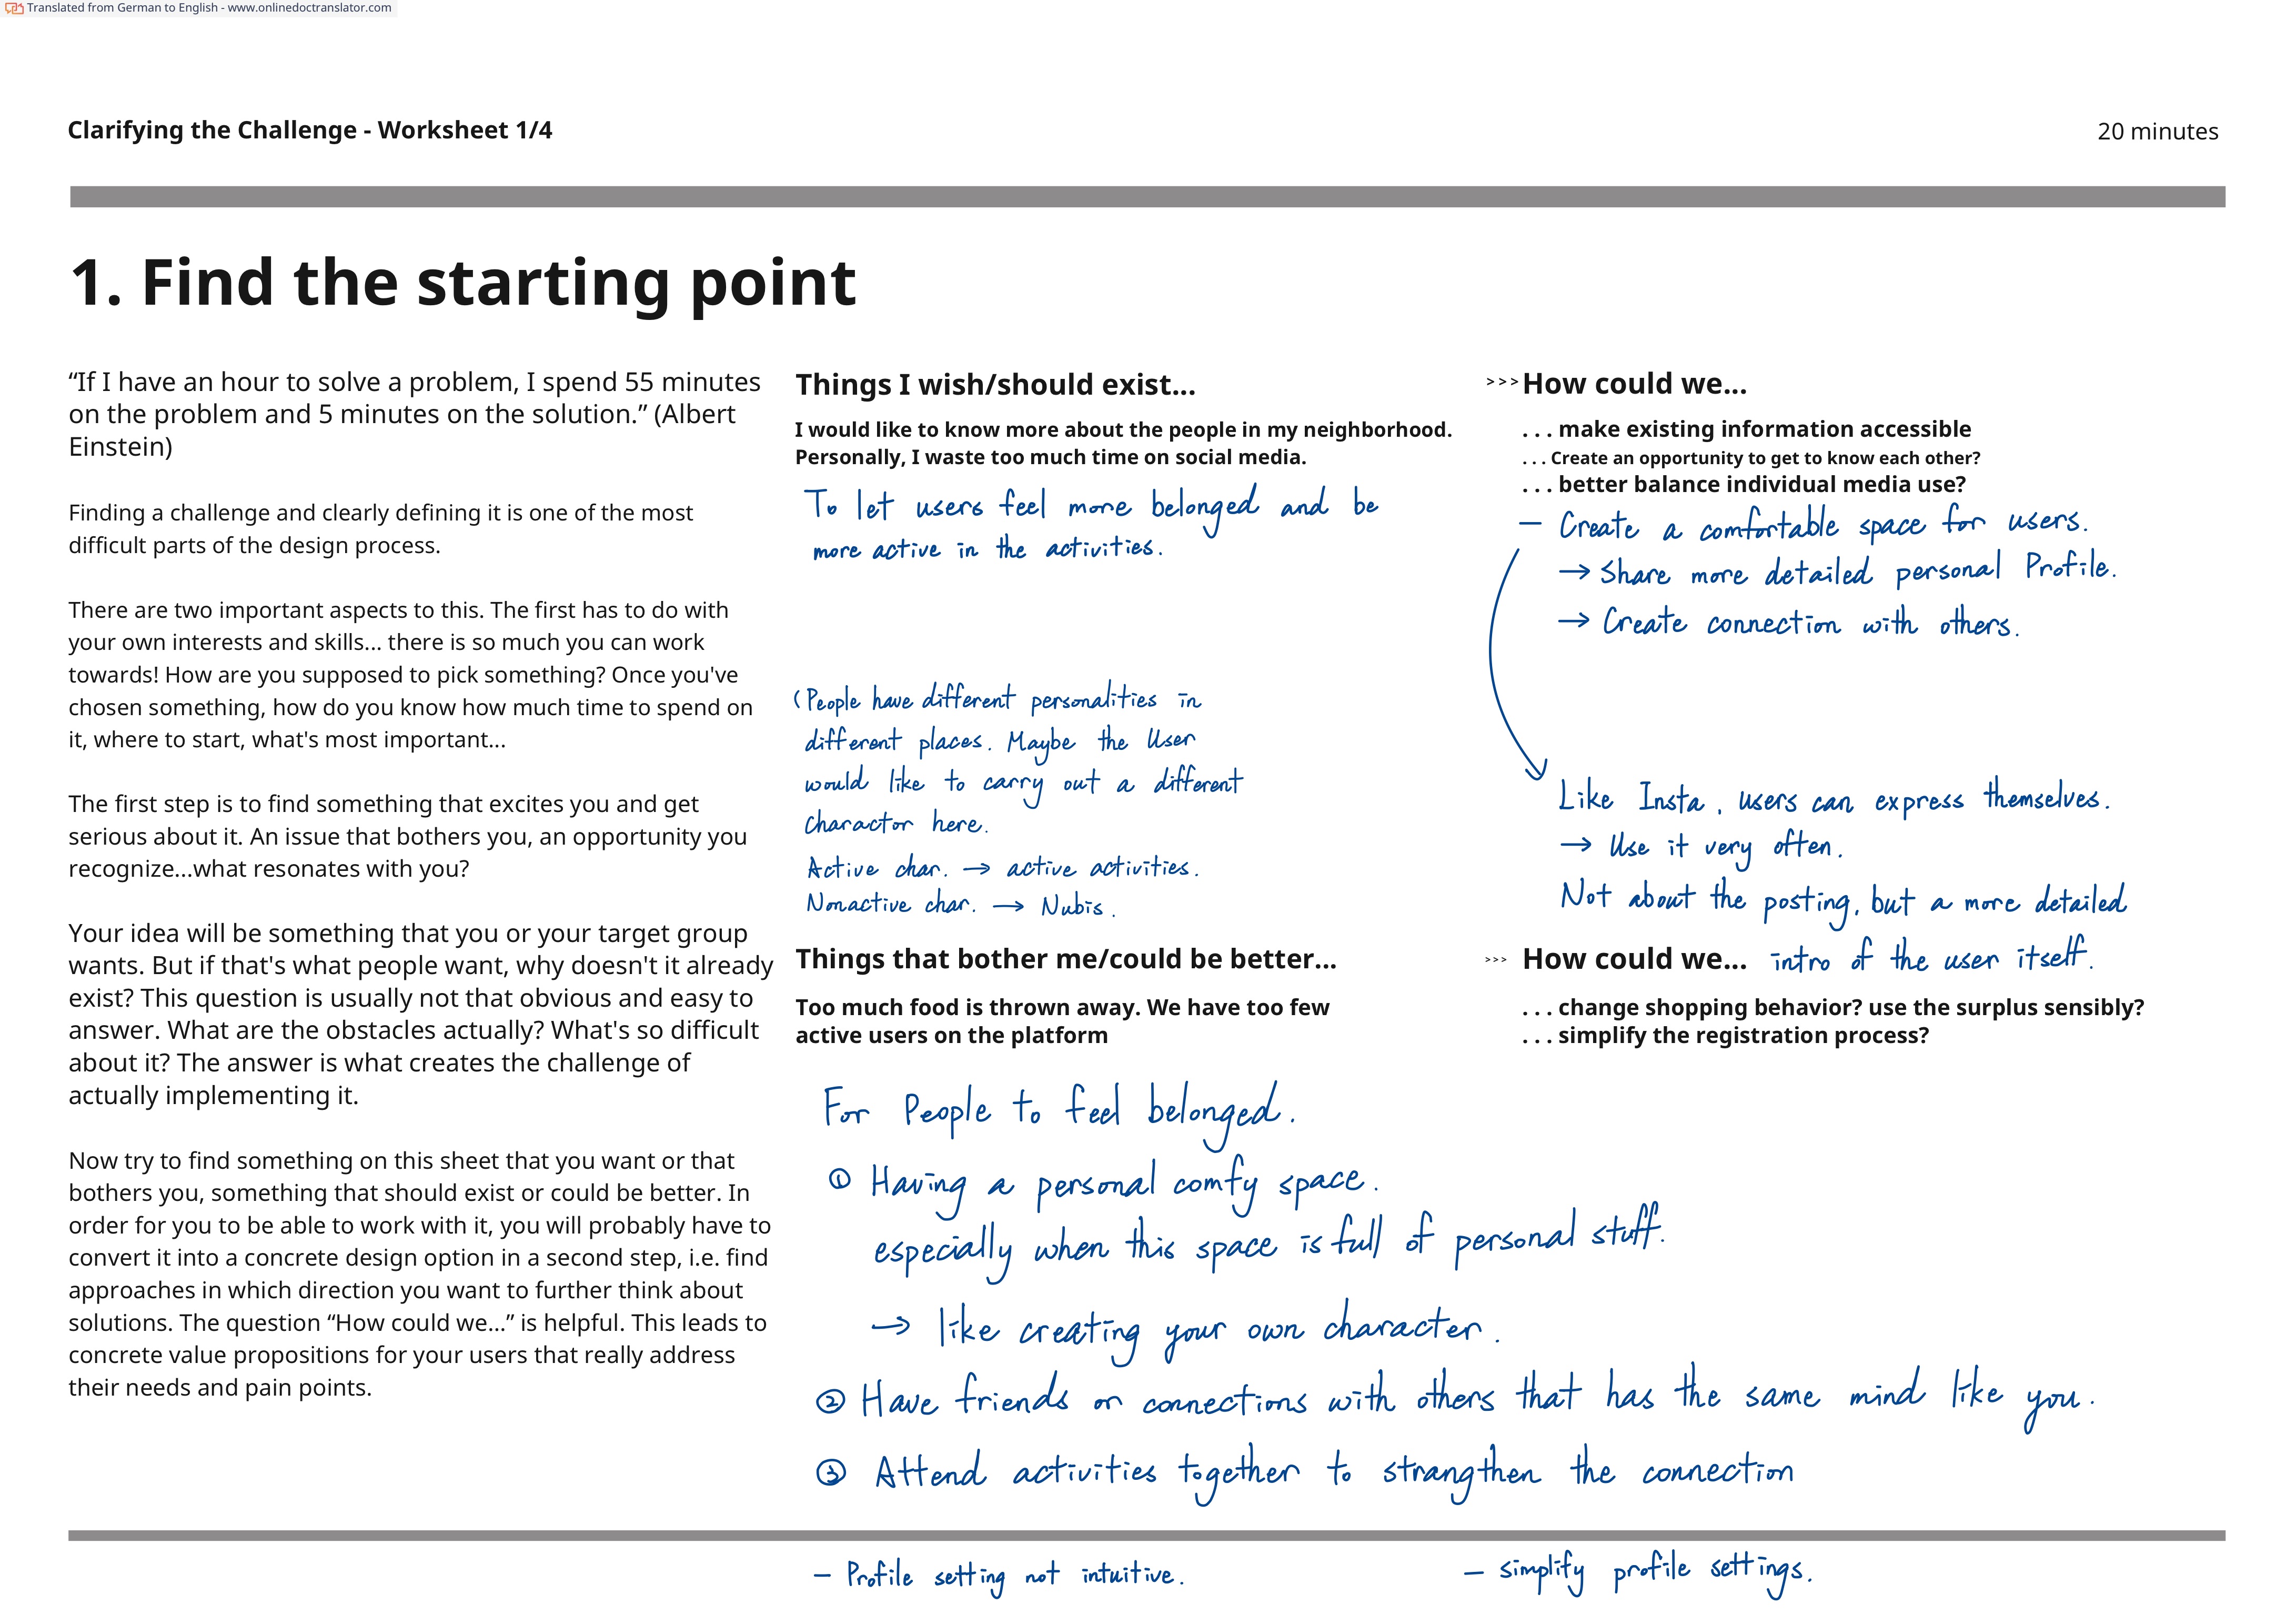 Translated from German to English - www.onlinedoctranslator.com
Clarifying the Challenge - Worksheet 1/4
20 minutes
1. Find the starting point
“If I have an hour to solve a problem, I spend 55 minutes
on the problem and 5 minutes on the solution.” (Albert
Einstein)
Finding a challenge and clearly defining it is one of the most
difficult parts of the design process.
There are two important aspects to this. The first has to do with
your own interests and skills... there is so much you can work
towards! How are you supposed to pick something? Once you've
chosen something, how do you know how much time to spend on
it, where to start, what's most important...
The first step is to find something that excites you and get
serious about it. An issue that bothers you, an opportunity you
recognize...what resonates with you?
Your idea will be something that you or your target group
wants. But if that's what people want, why doesn't it already
exist? This question is usually not that obvious and easy to
answer. What are the obstacles actually? What's so difficult
about it? The answer is what creates the challenge of
actually implementing it.
Now try to find something on this sheet that you want or that
bothers you, something that should exist or could be better. In
order for you to be able to work with it, you will probably have to
convert it into a concrete design option in a second step, i.e. find
approaches in which direction you want to further think about
solutions. The question “How could we...” is helpful. This leads to
concrete value propositions for your users that really address
their needs and pain points.
Things I wish/should exist...
I would like to know more about the people in my neighborhood.
Personally, I waste too much time on social media.
To let users feel more belonged and be
more active in the activities.
(People have different personalities in
different places. Maybe the User
would like to carry out a different
charactor here.
Active char. → active activities.
Nonactive char. → Nubis.
>>> How could we...
. . . make existing information accessible
. . . Create an opportunity to get to know each other?
. . . better balance individual media use?
— Create a comfortable space for users.
→ Share more detailed personal Profile.
→ Create connection with others.
Like Insta, users can express themselves.
→ Use it very often.
Not about the posting, but a more detailed
intro of the user itself.
Things that bother me/could be better...
Too much food is thrown away. We have too few
active users on the platform
>>> How could we...
. . . change shopping behavior? use the surplus sensibly?
. . . simplify the registration process?
For People to feel belonged.
① Having a personal comfy space.
especially when this space is full of personal stuff.
→ like creating your own character.
② Have friends or connections with others that has the same mind like you.
③ Attend activities together to strangthen the connection
— Profile setting not intuitive.
— simplify profile settings.